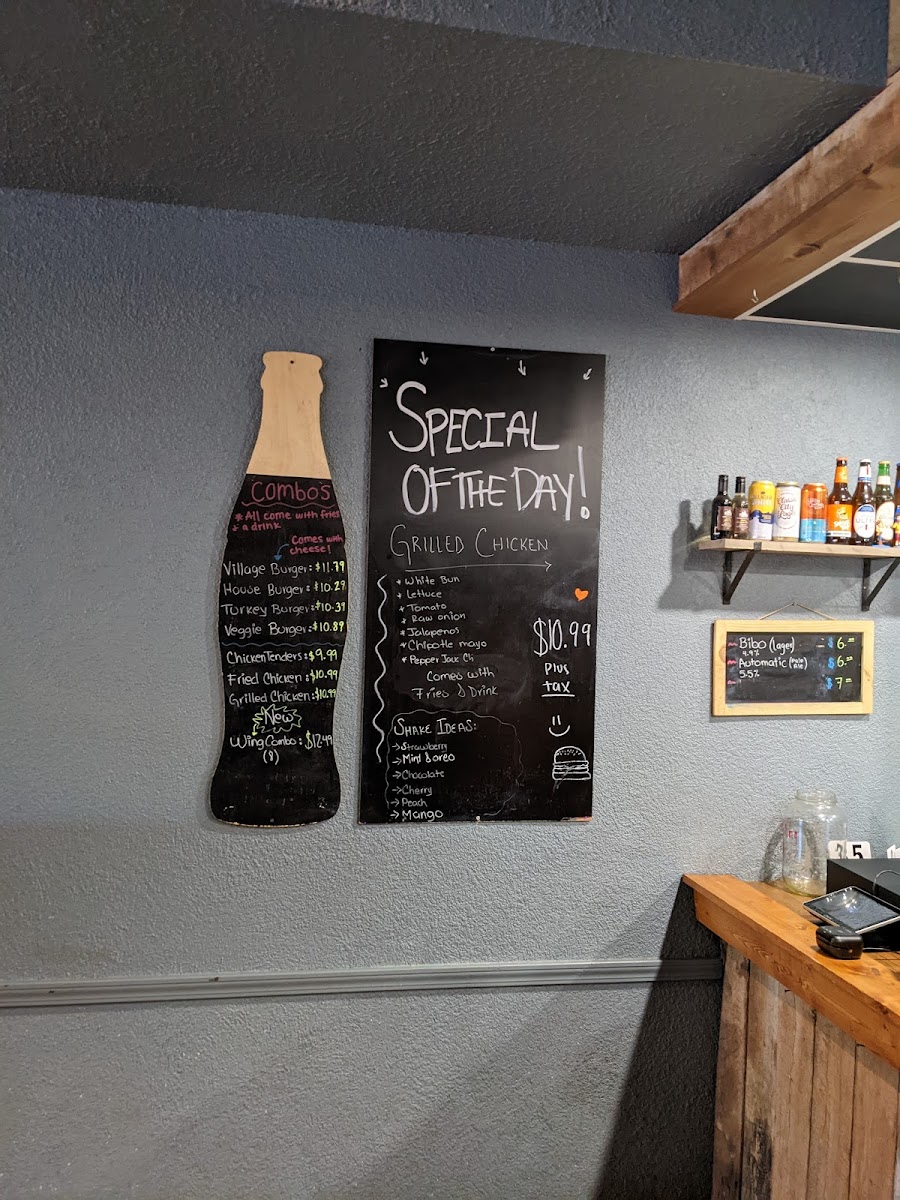 Combo's
* All come with fries
+ a drink
Comes with
cheese!
Village Burger: $11.79
House Burger: $10.29
Turkey Burger: $10.39
Veggie Burger: $10.89
Chicken Tenders: $9.99
Fried Chicken: $10.99
Grilled Chicken: $10.99
New
Wing Combo: $12.49
(8)
SPECIAL
OF THE DAY!
GRILLED CHICKEN
* White Bun
* Lettuce
* Tomato
* Raw onion
* Jalapenos
* Chipotle mayo
* Pepper Jack Ch
Comes with
Fries & Drink
$10.99
Plus
tax
SHAKE IDEAS:
→ Strawberry
→ Mint & oreo
→ Chocolate
→ Cherry
→ Peach
→ Mango
Bibo (Lager) - $6.00
4.9%
Automatic (Pale Ale) $6.00
5.5%
- $7.00
5